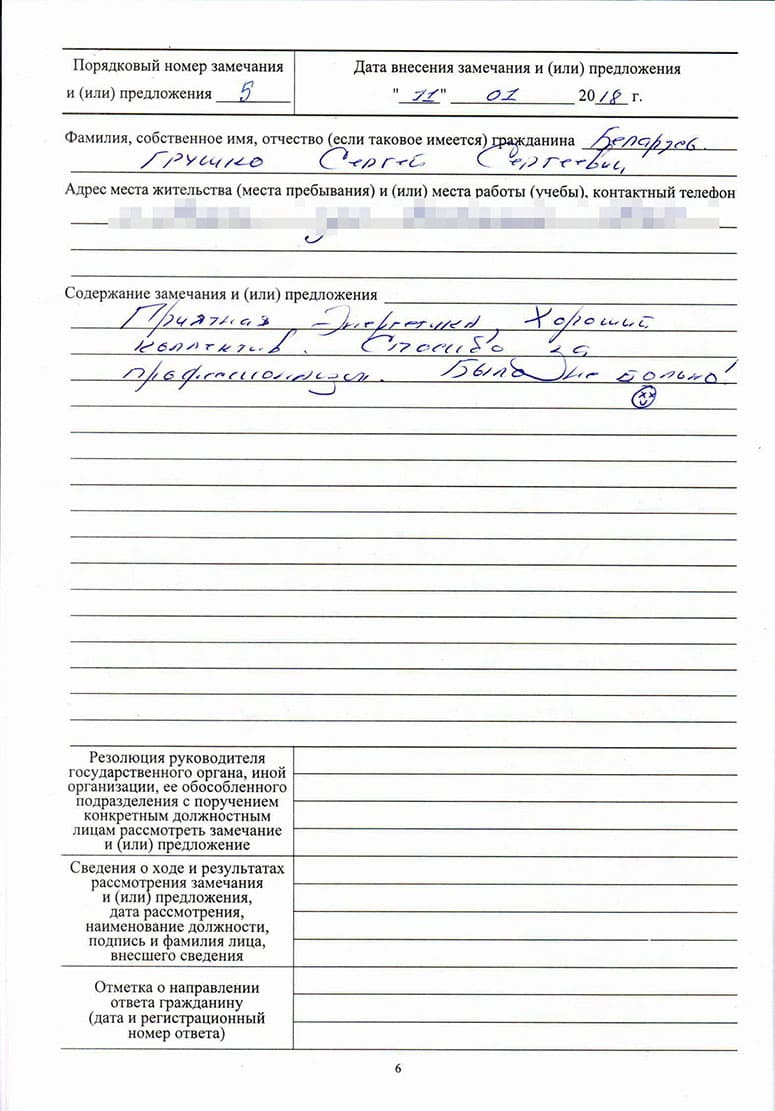 Порядковый номер замечания
и (или) предложения 5
Дата внесения замечания и (или) предложения
"11" 01 2018 г.
Фамилия, собственное имя, отчество (если таковое имеется) гражданина
Грушко Сергей Сергеевич
Адрес места жительства (места пребывания) и (или) места работы (учебы), контактный телефон
Содержание замечания и (или) предложения
Приятная Энергетика, Хороший
коллектив. Спасибо за
профессионализм. Было не больно!
Резолюция руководителя
государственного органа, иной
организации, ее обособленного
подразделения с поручением
конкретным должностным
лицам рассмотреть замечание
и (или) предложение
Сведения о ходе и результатах
рассмотрения замечания
и (или) предложения,
дата рассмотрения,
наименование должности,
подпись и фамилия лица,
внесшего сведения
Отметка о направлении
ответа гражданину
(дата и регистрационный
номер ответа)
6